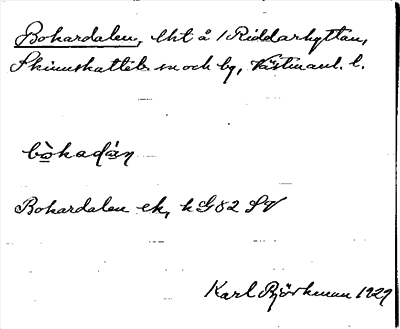 Bokardalen, lht å 1 Riddarhyttan,
Skinnskatteb. sn och by, Västmanl. l.
bò̲kadá̲n
Bokardalen ek, k G82 SV
Karl Björkman 1929